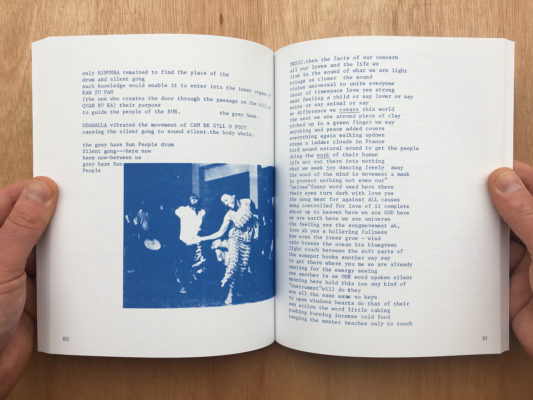 only RIMUMBA remained to find the place of the
drum and silent gong
such knowledge would enable it to enter into the inner organs of
KAW ZU PAM
(the one who creates the door through the passage on the hill of
their purpose
to guide the people of the SUN, the grey haze.
ODAWALLA vibrated the movement of CAM BE GILL O POI?
causing the silent gong to sound silent.the body whole.
the grey haze Sun People drum
Silent gong---here now
here now-between us
grey haze Sun
People
80
MUSIC.then the facts of our concern
all our loves and the life we
live in the sound of what we are light
brings us closer the sound
vision universal to unite everyone
input of timespace love yes strong
meat feeling a child or say lover or say
saint or say animal or say
no difference we create this world
the west we are around piece of clay
picked up in a green finger we say
anything and peace added covers
everything again walking updown
stays a ladder clouds in France
bird sound natural sound to get the people
doing the work of their human
life not out there into nothing
what we seek joy dancing freely away
the wood of the mind is movement a mask
to protect nothing not even our"
"selves"funny word used here there
their eyes turn dark with love yes
the song meat for against ALL causes
song controlled for love of it complete
about up to heaven here we are GOD here
we are earth here we are universe
the feeling yes the songmovement ah,
love oh yes a hollering fullness
how even the trees grow - wind
calm breeze the ocean its bluegreen
light touch between the soft parts of
the sunspot hooks another way say
to get there where you me we are already
seeing for the energy seeing
one another is as ONE word spoken silent
meaning here hold this too any kind of
"instrument"will do they
are all the same same no keys
to open windows hearts do that of their
own action the word little taking
pushing burning incense cold food
ranging the master teaches only to touch
81